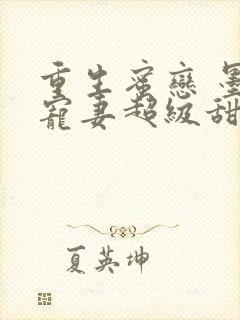 重生蜜戀 墨
寵妻超級甜
夏英坤